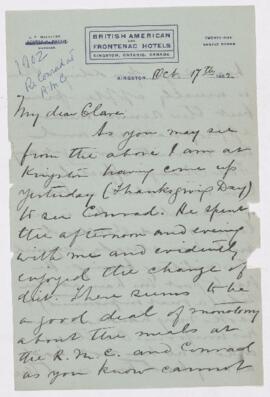 BRITISH AMERICAN
AND
FRONTENAC HOTELS
KINGSTON, ONTARIO, CANADA
1902
Re Conrad at
R.M.C
KINGSTON, Oct 17th 1902
My dear Clare,
As you may see
from the above I am at
Kingston having come up
yesterday (Thanksgiving Day)
to see Conrad. He spent
the afternoon and evening
with me and evidently
enjoyed the change of
diet. There seems to be
a good deal of monotony
about the meals at
the R.M.C. and Conrad
as you know cannot